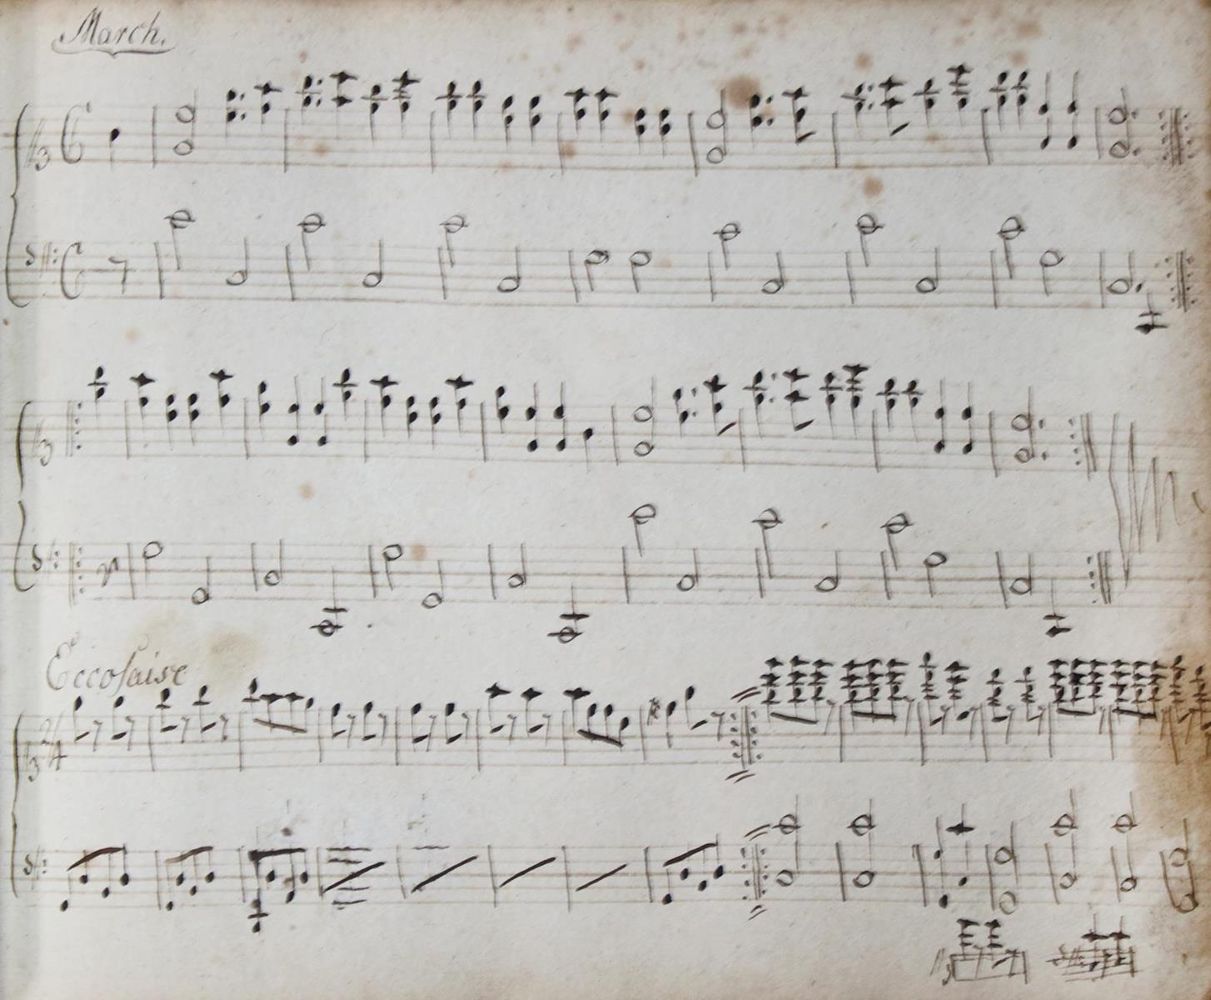 March.
Eccosaise
2/4